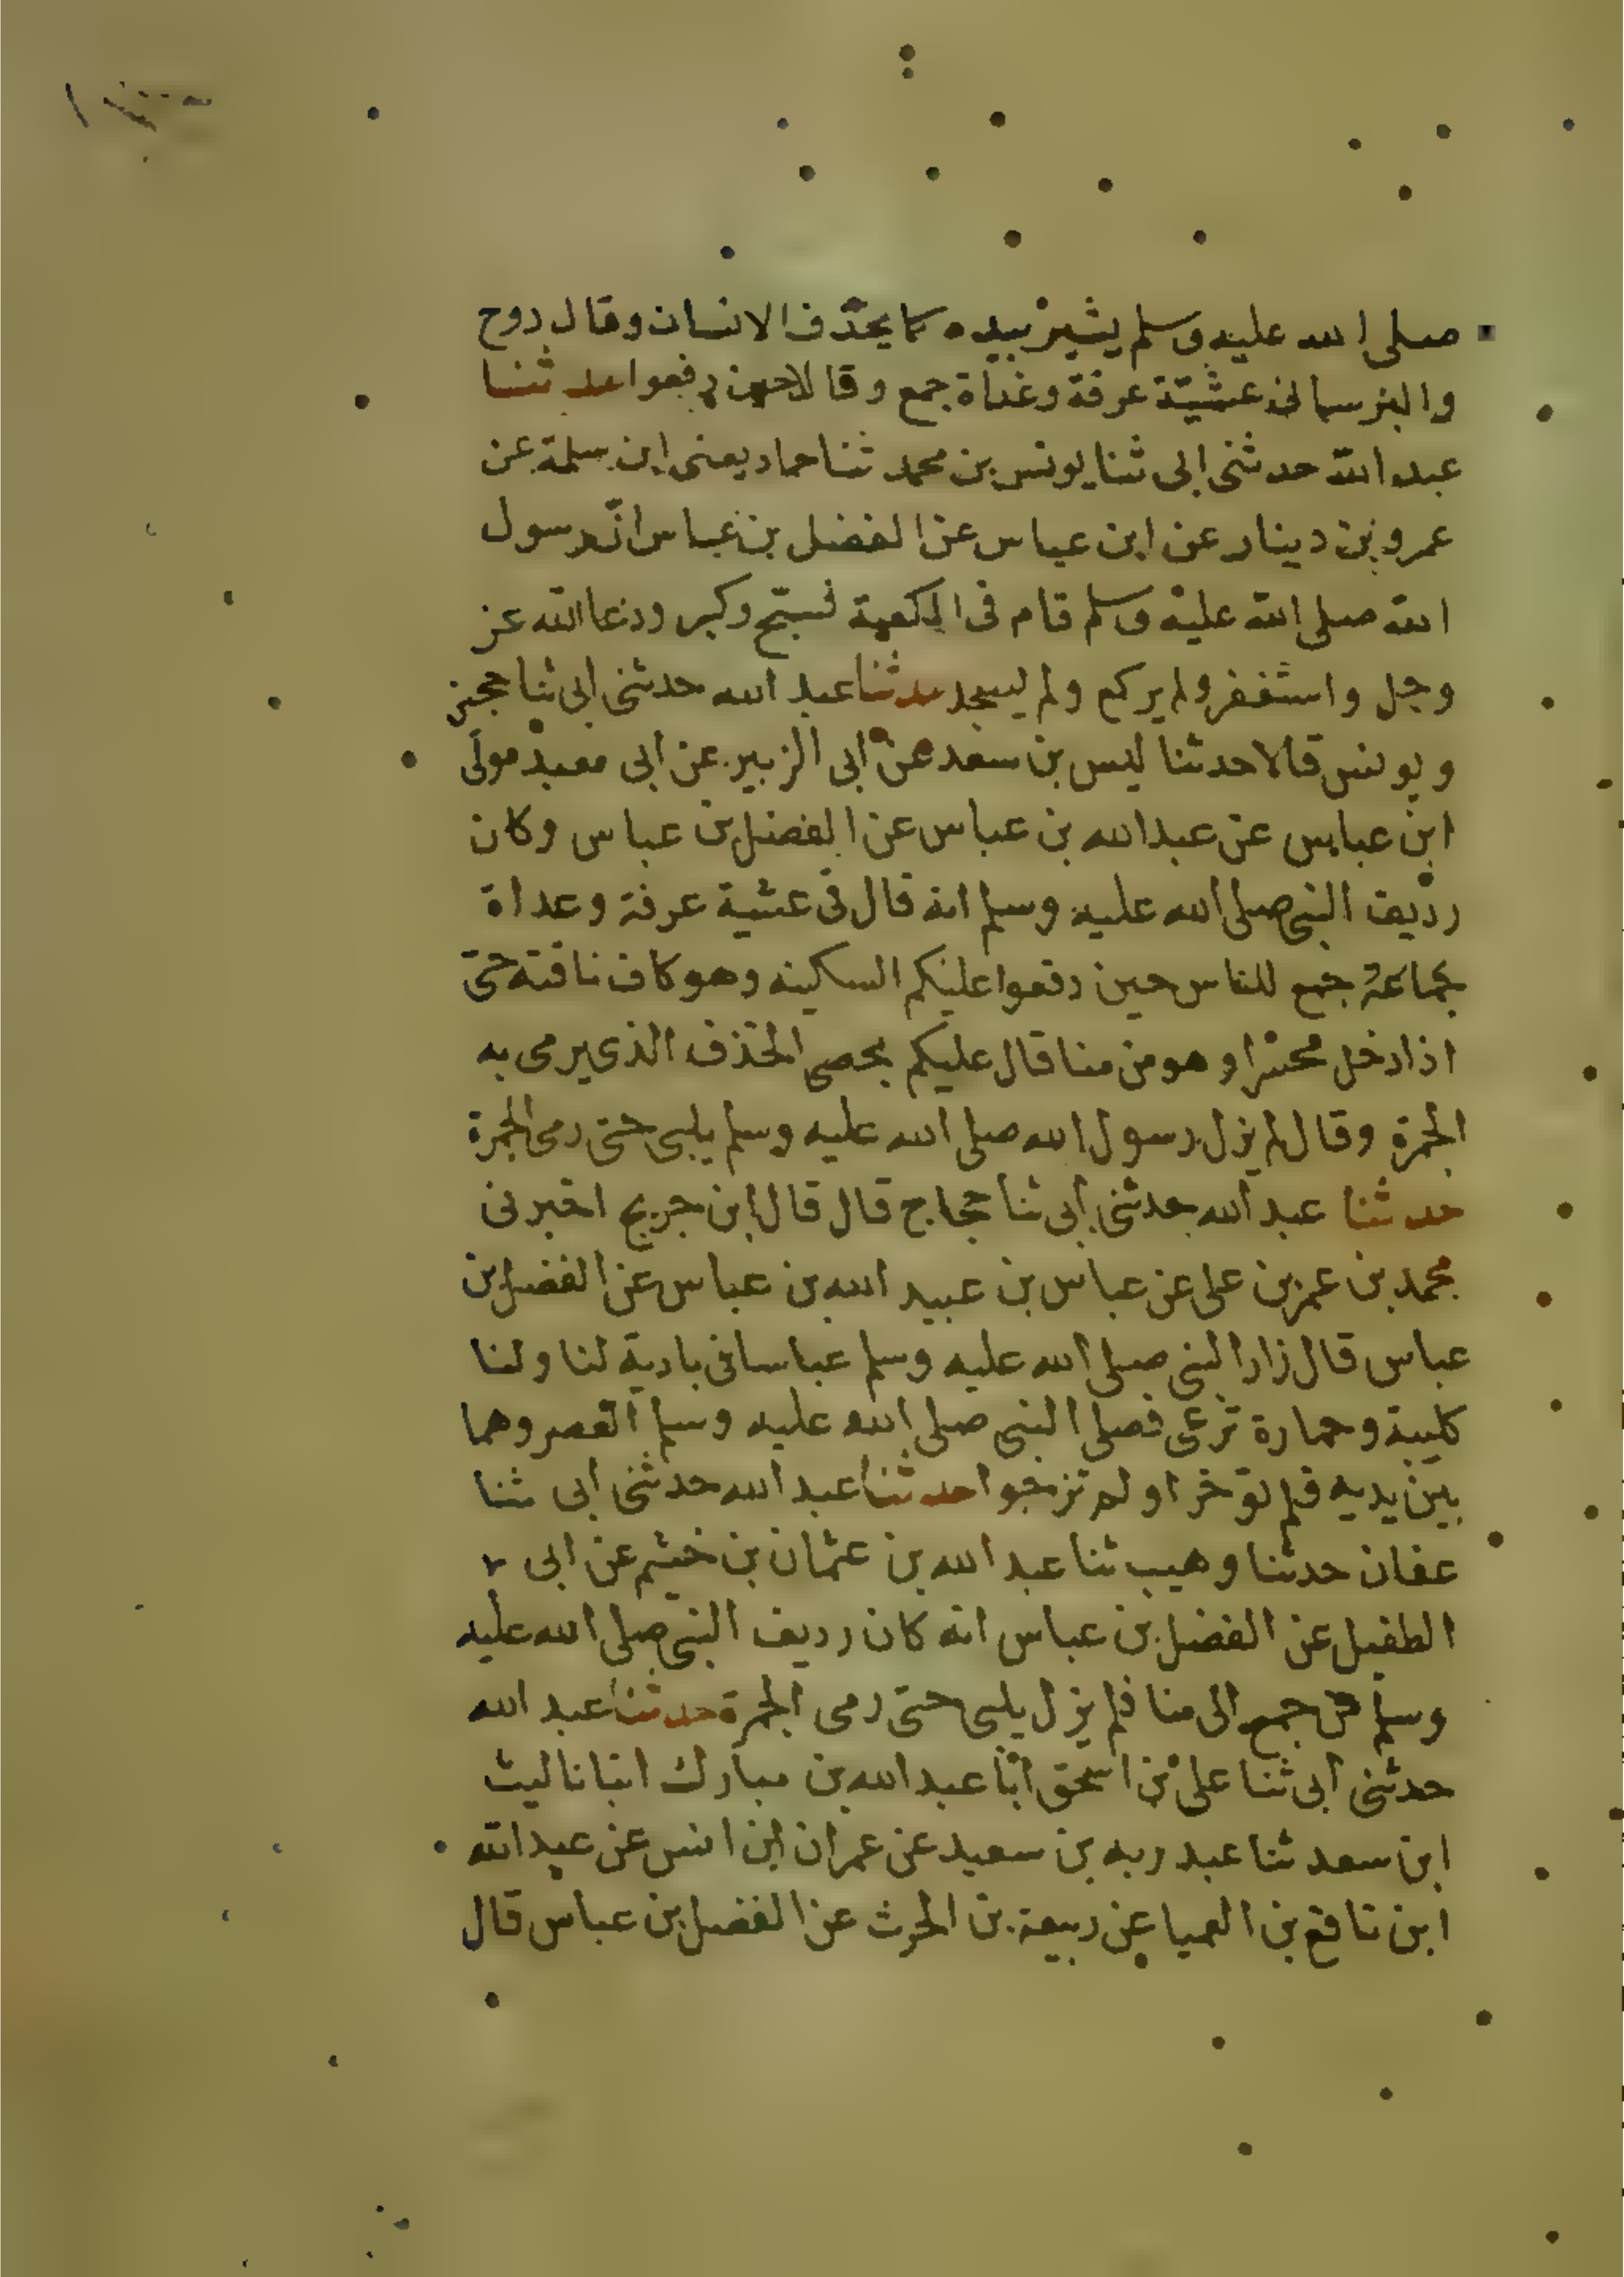 صلى الله عليه وسلم يشير بيده كما يخذف الانسان وقال روح
والبرسانى عشية عرفة وغداة جمع وقالا حين دفعوا حدثنا
عبد الله حدثنى ابى ثنا يونس بن محمد ثنا حماد يعنى ابن سلمة عن
عمرو بن دينار عن ابن عباس عن الفضل بن عباس ان رسول
الله صلى الله عليه وسلم قام فى الكعبة فسبح وكبر ودعا الله عز
وجل واستغفر ولم يركع ولم يسجد حدثنا عبد الله حدثنى ابى ثنا حجين
ويونس قالا حدثنا ليس بن سعد عن ابى الزبير عن ابى معبد مولى
ابن عباس عن عبد الله بن عباس عن الفضل بن عباس وكان
رديف النبى صلى الله عليه وسلم انه قال فى عشية عرفة وعداة
جمع للناس حين دفعوا عليكم السكينه وهو كاف ناقته حتى
اذا دخل محسرا وهو من منا قال عليكم بحصى الخذف الذى يرمى به
الجمرة وقال لم يزل رسول الله صلى الله عليه وسلم يلبى حتى رمى الجمرة
حدثنا عبد الله حدثنى ابى ثنا حجاج قال قال ابن جريج اخبرنى
محمد بن عمر بن على عن عباس بن عبيد الله بن عباس عن الفضل بن
عباس قال زار النبى صلى الله عليه وسلم عباسا فى بادية لنا ولنا
كليبة وحمارة ترعى فصلى النبى صلى الله عليه وسلم العصر وهما
بين يديه فلم توخرا ولم تزجرا حدثنا عبد الله حدثنى ابى ثنا
عفان حدثنا وهيب ثنا عبد الله بن عثمان بن خيثم عن ابى
الطفيل عن الفضل بن عباس انه كان رديف النبى صلى الله عليه
وسلم من جمع الى منا فلم يزل يلبى حتى رمى الجمرة حدثنا عبد الله
حدثنى ابى ثنا على بن اسحق انا عبد الله بن مبارك انبانا ليث
ابن سعد ثنا عبد ربه بن سعيد عن عمران ابن انس عن عبد الله
ابن نافع بن العميا عن ربيعة بن الحرث عن الفضل بن عباس قال